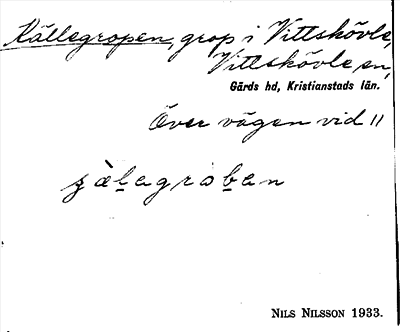 Källegropen, grop i Vittskövle,
Vittskövle sn,
Gärds hd, Kristianstads län.
Över vägen vid 11
NILS NILSSON 1933.